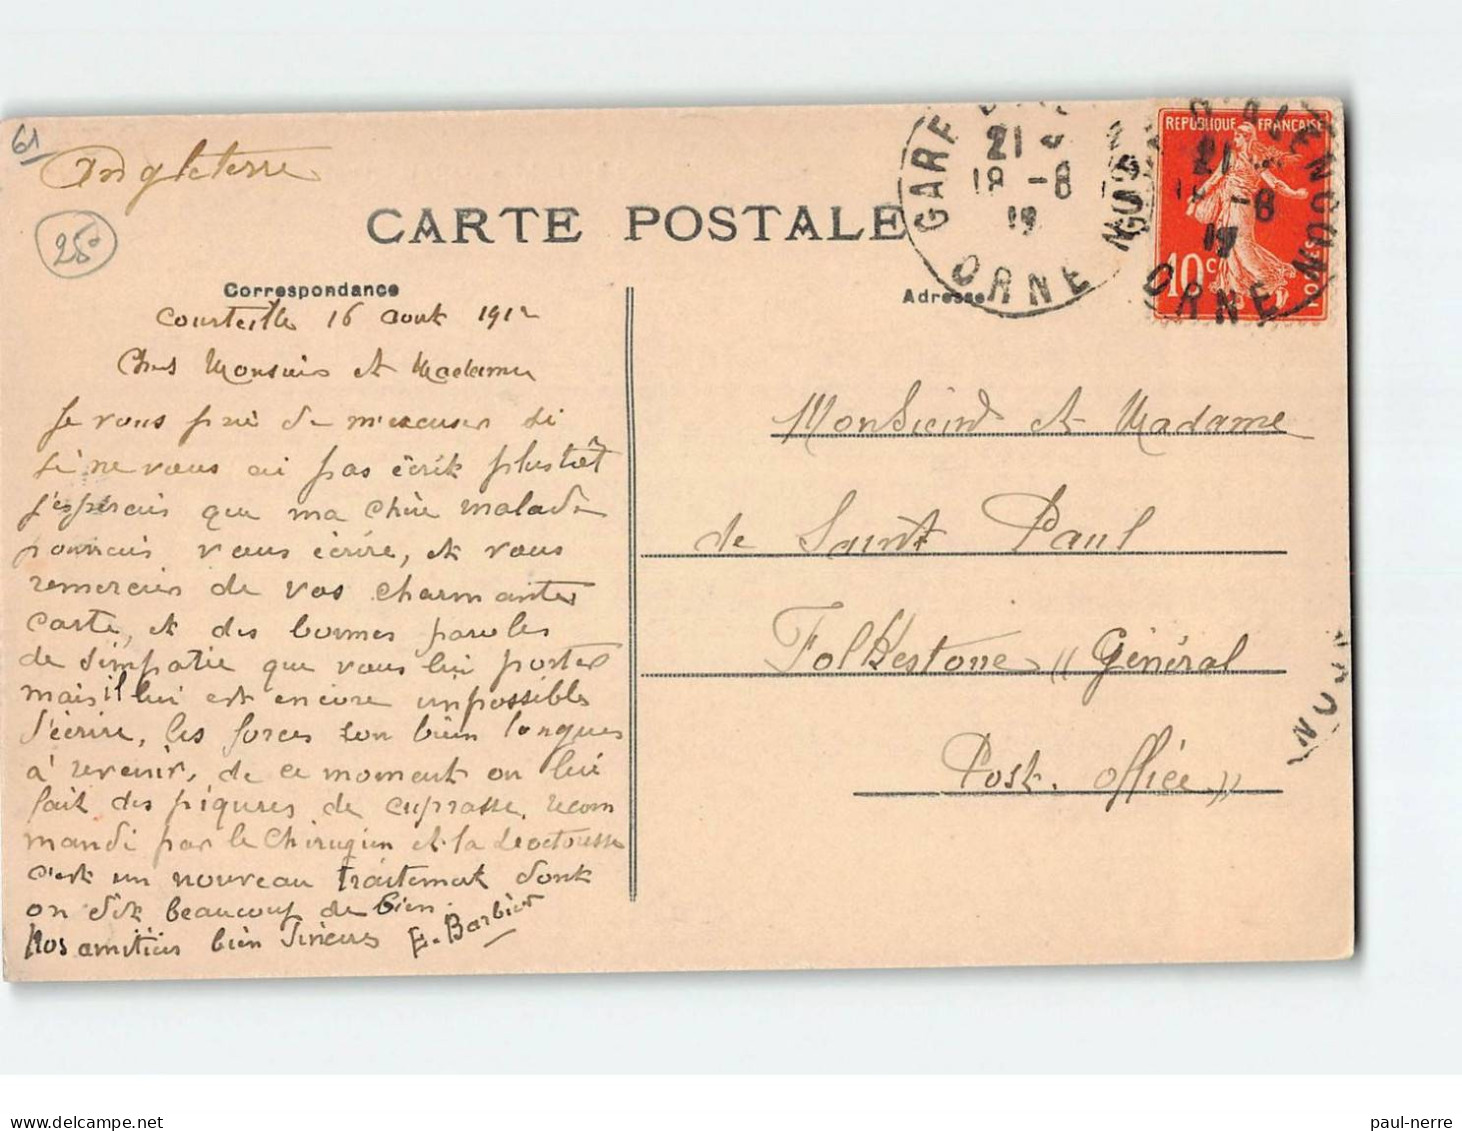 61
Angleterre
250
CARTE POSTALE
Correspondance
Adresse
GARE
21
18 -8
ORNE
REPUBLIQUE FRANÇAISE
10 c
POSTES
21
-8
ORNE
Courteille 16 aout 1912
Chers Monsieur et Madame
Je vous prie de m'excuser si
je ne vous ai pas écrit plustôt
j'esperais que ma chère malade
pourrais vous écrire, et vous
remercier de vos charmantes
carte, et des bonnes paroles
de simpatie que vous lui portez
mais il lui est encore impossibles
d'écrire, les forces son bien longues
a revenir, de ce moment on lui
fait des piqures de cuprasse, recom
mandé par le Chirugien et la Doctoresse
c'est un nouveau traitemat dont
on dit beaucoup de bien.
Nos amitiés bien sinceres E. Barbier
Monsieur et Madame
de Saint Paul
Folkestone "Général
Post. office"
paul-nerre